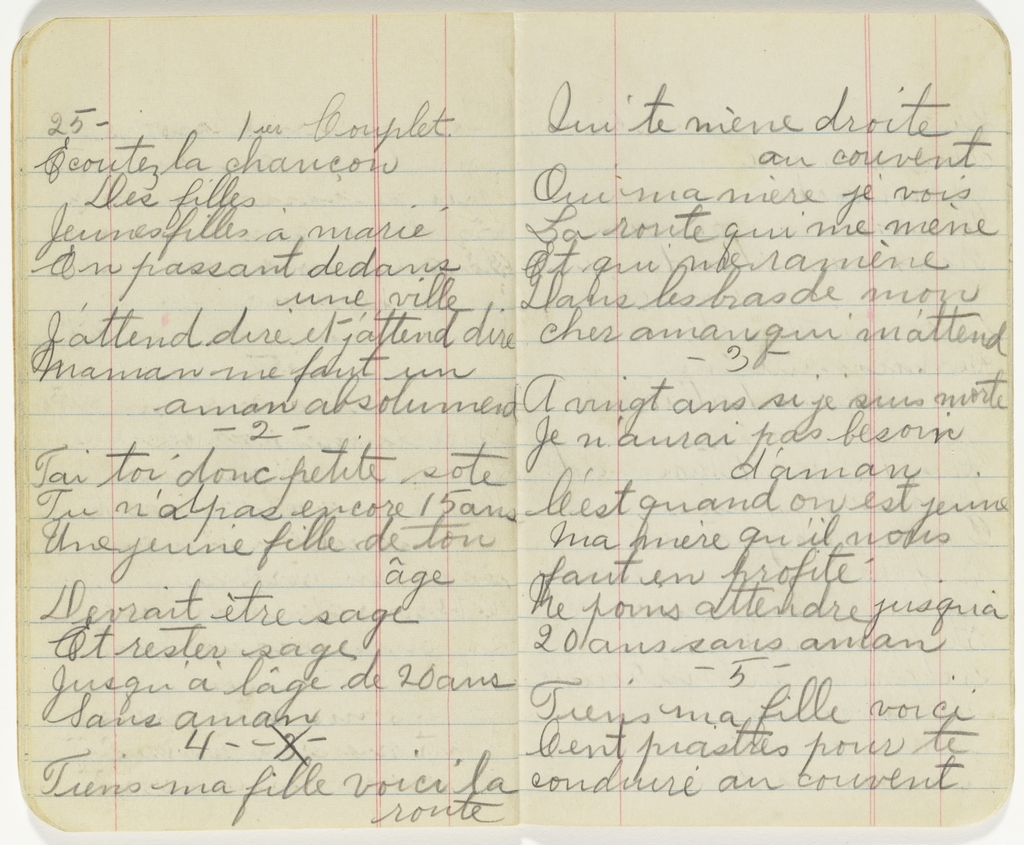 25- 1er Couplet.
Écoutez la chançon
Des filles
Jeunes filles à marié
En passant dedans
une ville
J'attend dire et j'attend dire
Maman me faut un
aman absolument
- 2 -
Tai toi donc petite sote
Tu n'a pas encore 15 ans
Une jeune fille de ton
âge
Devrait être sage
Et rester sage
Jusqu'à l'âge de 20 ans
Sans aman
4 - - 2 -
Tiens ma fille voici la
route
Qui te mène droite
au couvent
Oui ma mère je vois
La route qui me mène
Et qui me ramène
Dans les bras de mon
cher aman qui m'attend
- 3 -
A vingt ans si je suis morte
Je n'aurai pas besoin
d'aman
C'est quand on est jeune
Ma mère qu'il nous
faut en profité
Ne poins attendre jusqu'a
20 ans sans aman
- 5 -
Tiens ma fille voici
Cent piastres pour te
conduire au couvent.